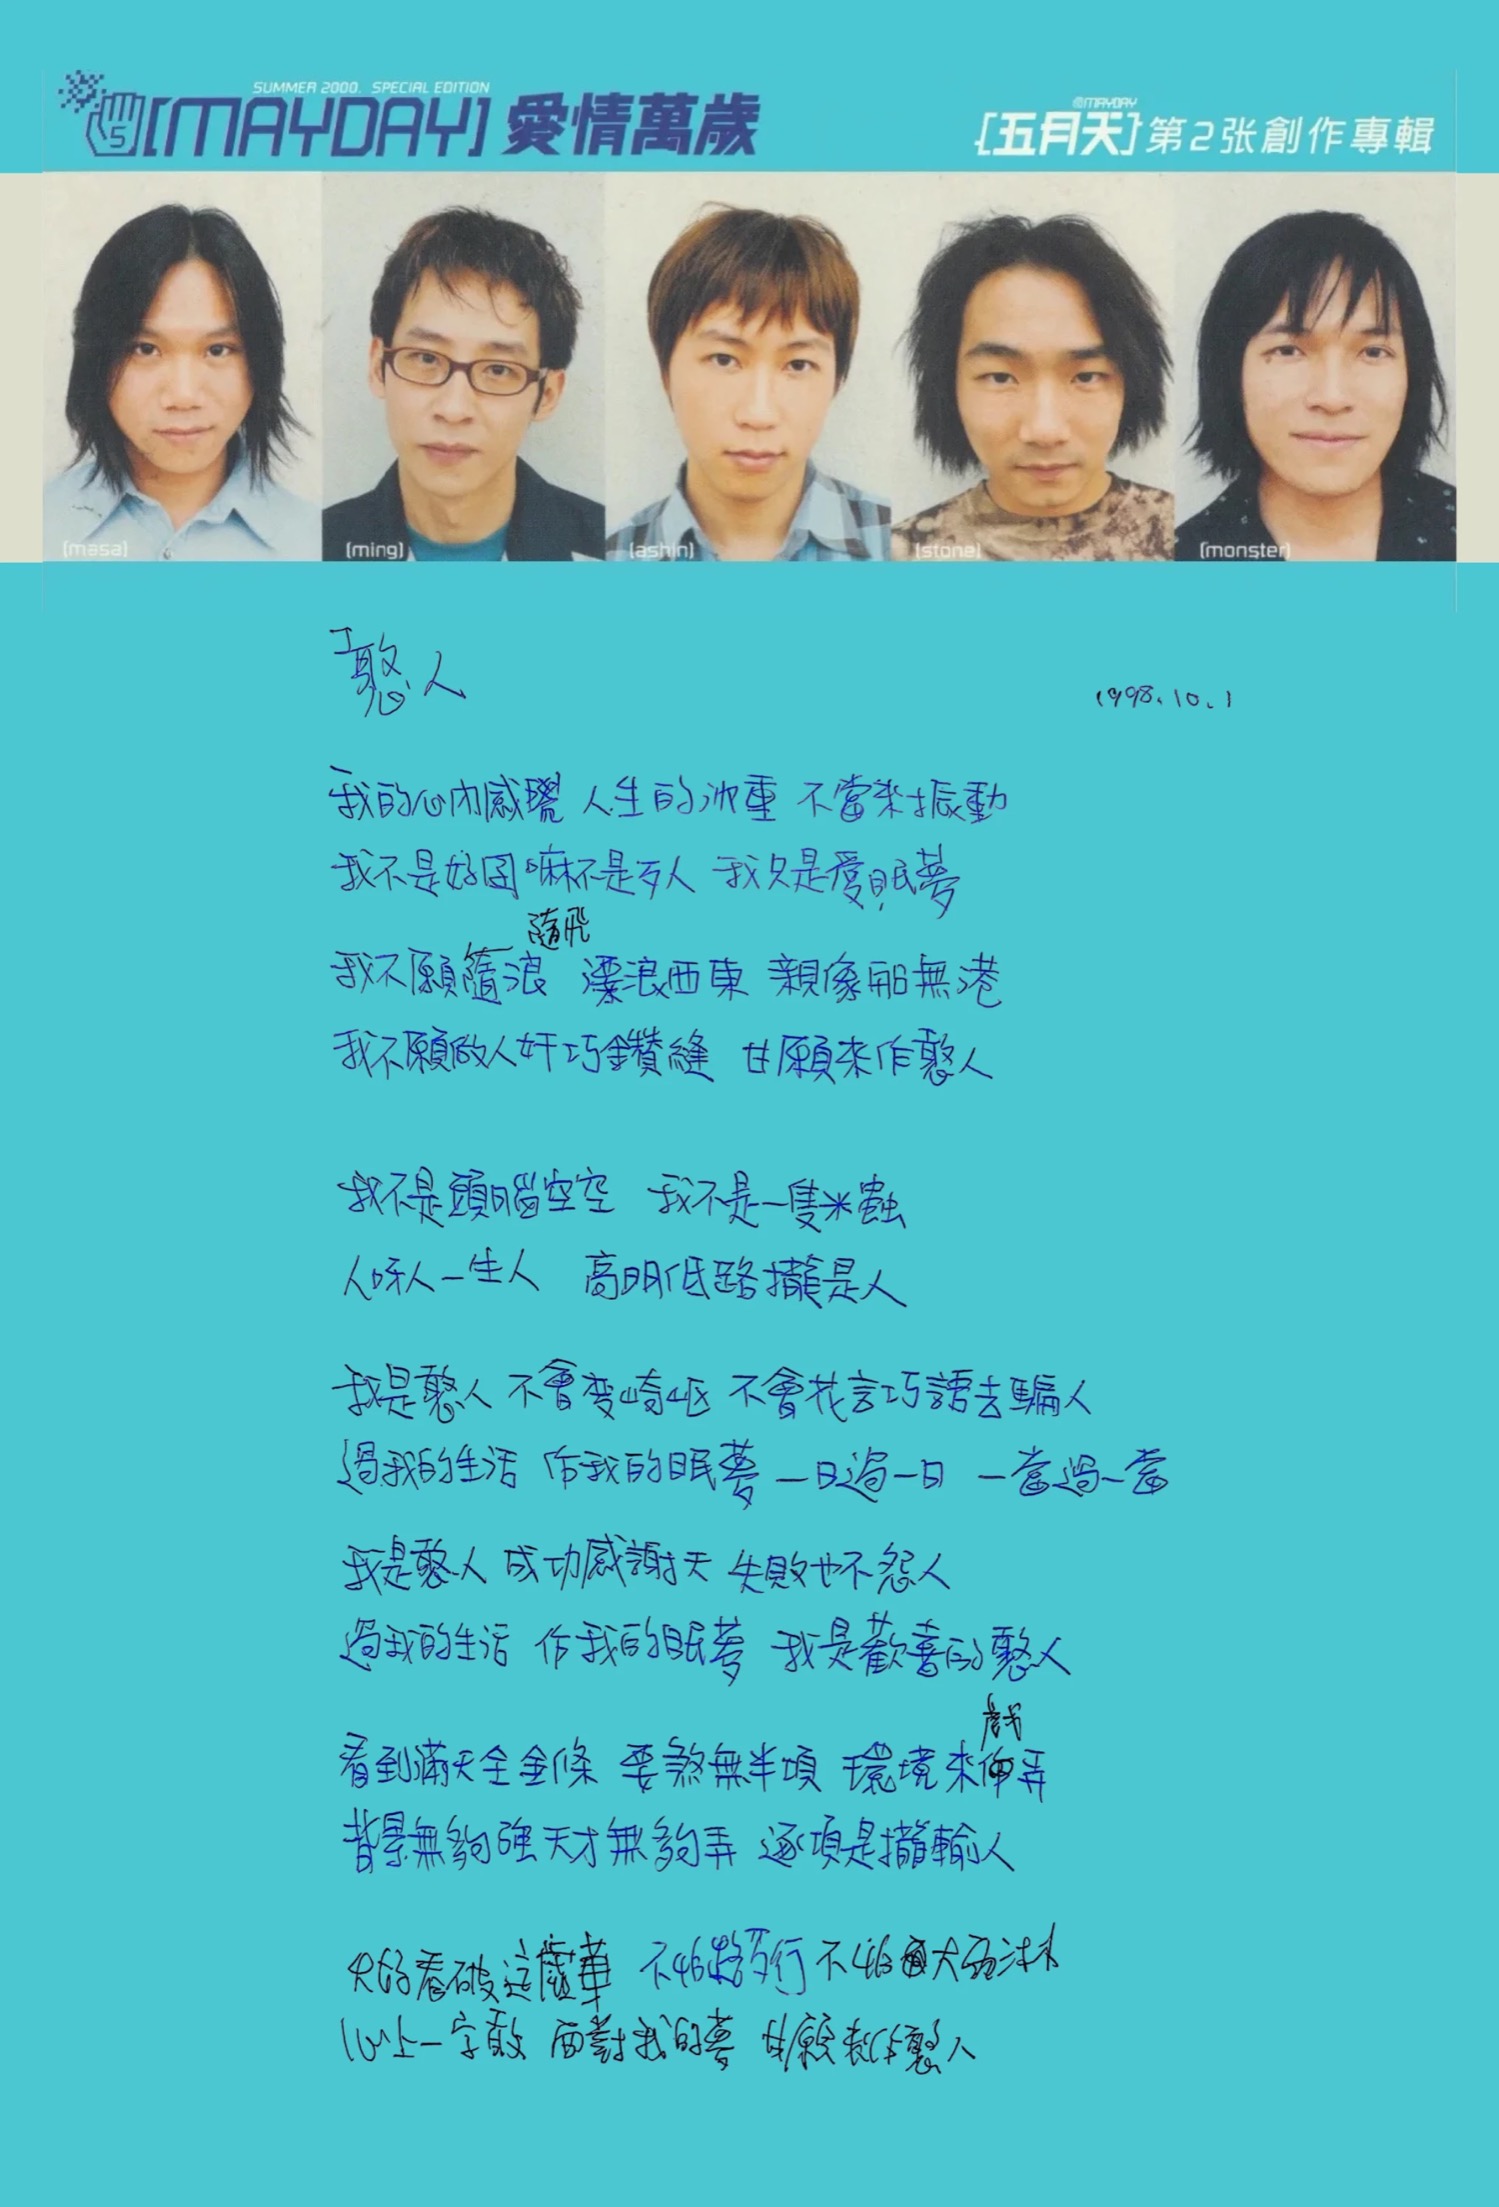 SUMMER 2000. SPECIAL EDITION
[MAYDAY] 愛情萬歲
@MAYDAY
[五月天] 第2张創作專輯
5
(masa) (ming) (ashin) (stone) (monster)
憨人
1998.10.1
我的心內感覺 人生的沈重 不當來振動
我不是好囝 嘛不是歹人 我只是愛眠夢
隨飛
我不願隨浪 漂浪西東 親像船無港
我不願做人奸巧鑽縫 甘願來作憨人
我不是頭腦空空 我不是一隻米蟲
人呀人一生人 高明低路攏是人
我是憨人 不會变崎岖 不會花言巧語去騙人
過我的生活 作我的眠夢 一日過一日 一當過一當
我是憨人 成功感謝天 失敗也不怨人
過我的生活 作我的眠夢 我是歡喜的憨人
戲
看到滿天全金條 要煞無半項 環境來弄
背景無夠強 天才無夠弄 逐項是攏輸人
只好看破這虛華 不怕路歹行 不怕大雨淋
心上一字敢 面對我的夢 甘願來作憨人